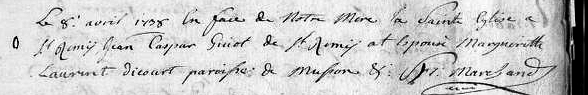 Le 8: avril 1738 En face de Notre Mere la Sainte Eglise a
St Remij Jean Gaspar Guiot de St Remij at Epousé Margueritte
Laurent dicourt paroisse: de Musson &: Marchand